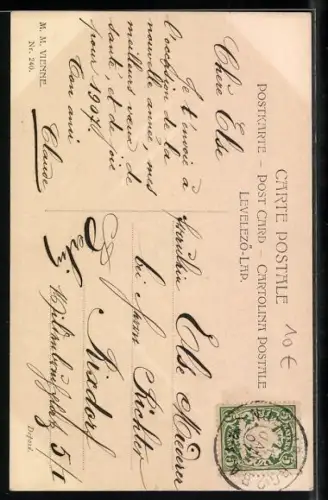 CARTE POSTALE
POSTKARTE – POST CARD – CARTOLINA POSTALE
LEVELEZŐ-LAP.
Chère Else
Je t'envoie à
l'occasion de la
nouvelle année, mes
meilleurs vœux de
santé, et de joie
pour 1907!
Ton amie
Claude
Fräulein
Else
bei Frau Richter
Rixdorf
Berlin
5/I
M. M. VIENNE.
Nr. 240.
Déposé.
10 €